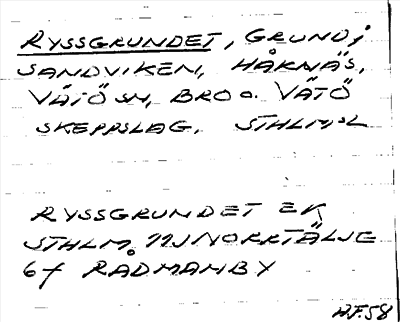 RYSSGRUNDET, GRUND i
SANDVIKEN, HÅKNÄS,
VÄTÖ SN, BRO o. VÄTÖ
SKEPPSLAG. STHLMS L
RYSSGRUNDET EK
STHLM. 11J NORRTÄLJE
6f RÅDMANBY